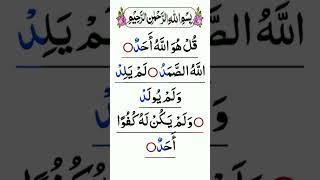 بِسْمِ اللهِ الرَّحْمٰنِ الرَّحِيْمِ
قُلْ هُوَ اللّٰهُ أَحَدٌ
اللّٰهُ الصَّمَدُ لَمْ يَلِدْ
وَلَمْ يُولَدْ
وَلَمْ يَكُنْ لَهُ كُفُوًا
أَحَدٌ